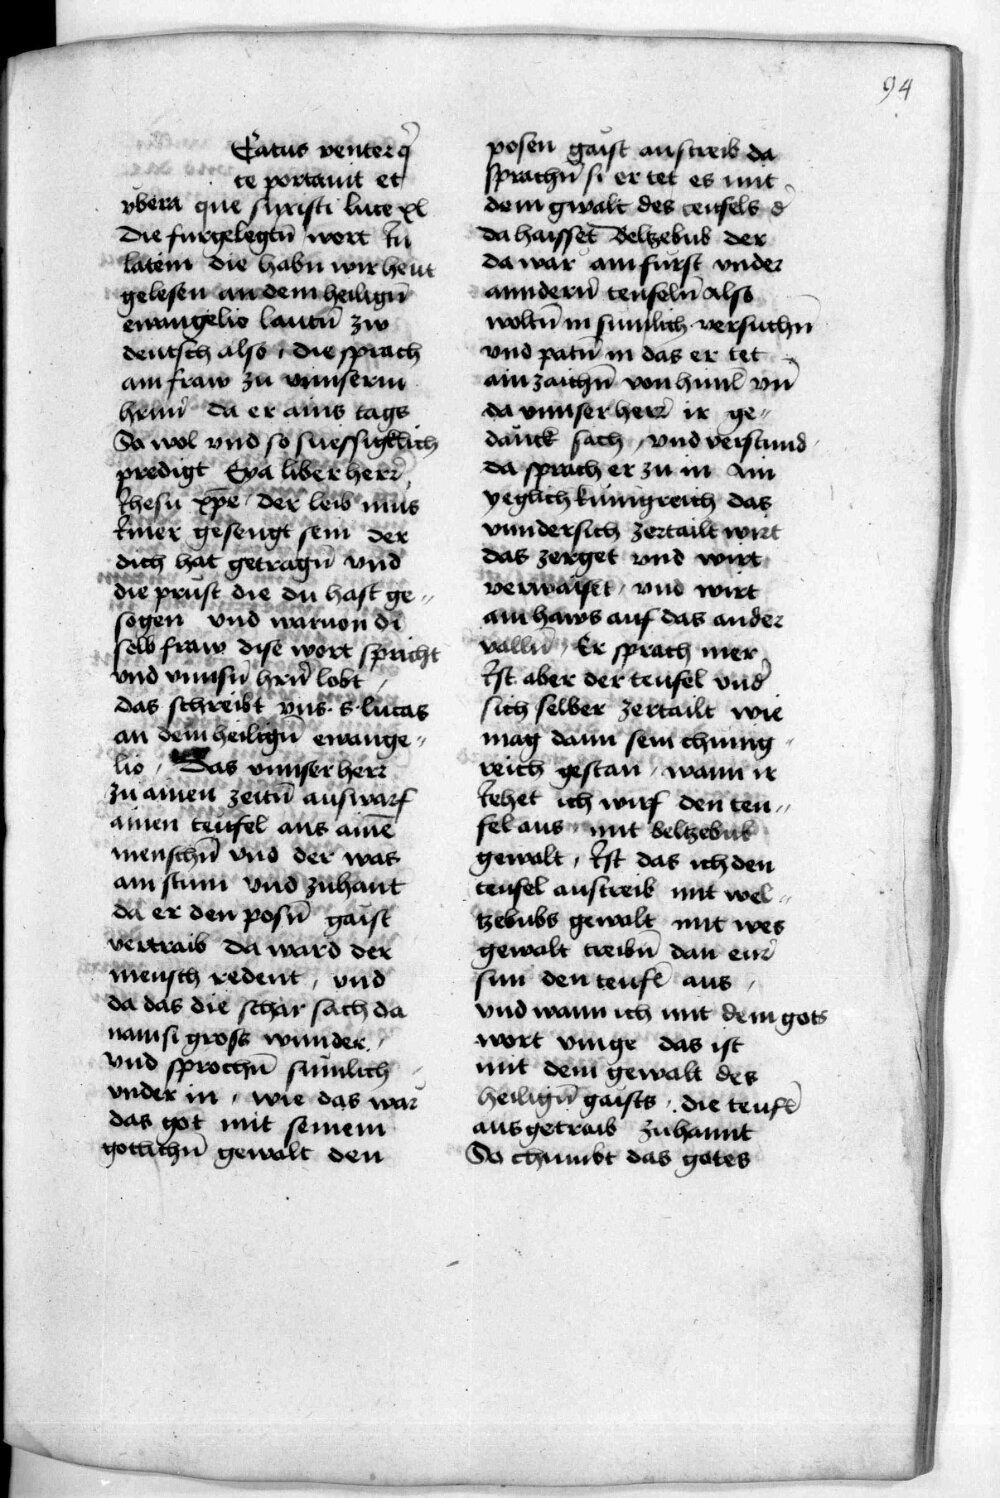 94
Eatus venter q̃
te portauit et
vbera que suxisti luce xi
Die furgelegtn̄ wort In
latein die habn̄ wir heut
gelesen an dem heilign̄
ewangelio lautn̄ zw
deutsch also , die sprach
ain fraw zu vnnserm
hrnn̄ da er ains tags
So wol vnd so suessigklich
predigt Eya liber herr̄
Ihesu xp̄e , der leib mus
Imer gesengt sein der
dich hat getragn̄ vnd
die prüst die du hast ge〃
sogen vnd waruon di
selb fraw dise wort spricht
vnd vnnsn̄ hrn̄ lobt ,
das schreibt vns . s . lucas
an dem heilign̄ ewange〃
lio , Das vnnser herr
zu ainen zeitn̄ auswarf
ainen teufel aus ainē
menschn̄ vnd der was
ain stum vnd zuhant
da er den posn̄ gaist
vertraib da ward der
mensch redent , vnd
da das die schar sach da
nam si gross wunder ,
vnd sprochn̄ sümlich
vnder in , wie das war
das got mit seinem
gotlichn̄ gewalt den
posen gaist austreib da
sprachn̄ si er tet es mit
dem gwalt des teufels d̄
da haisset Beltzebub der
da war ain fürst vnder
anndern̄ teufeln̄ Also
woltn̄ in sümlich versuchn̄
vnd patn̄ in das er tet
ain zaichn̄ von himl vn̄
da vnnser herr̄ ir ge〃
dänck sach , vnd verstund ,
da sprach er zu in Ain
yeglich künigreich das
vnndersich zertailt wirt
das zerget vnd wirt
verwaiset , vnd wirt
ain haws auf das ander
valln̄ , Er sprach mer
Ist aber der teufel vnd̄
sich selber zertailt wie
mag dann sein chünig〃
reich gestan , wann ir
Iehet ich wirf den teu〃
fel aus mit beltzebub
gewalt , Ist das ich den
teufel austreib mit wel〃
tzebubs gewalt mit wes
gewalt treibn̄ dan eur̄
sun den teufl̄ aus ,
vnd wann ich mit dem gots
wort vinge das ist
mit dem gewalt des
heilign̄ gaists , die teufl̄
ausgetraib zuhannt
So chumbt das gotes